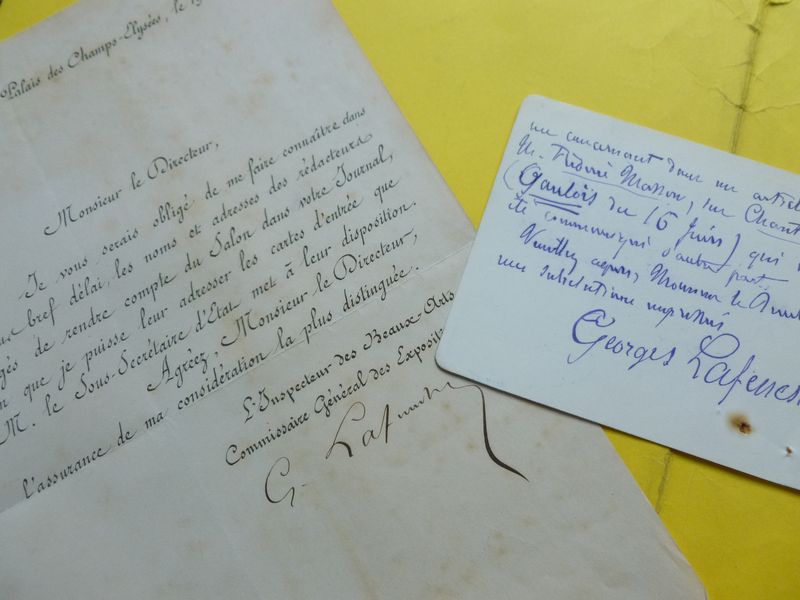 Palais des Champs-Elysées, le
Monsieur le Directeur,
Je vous serais obligé de me faire connaître dans
bref délai, les noms et adresses des rédacteurs
gés de rendre compte du Salon dans votre Journal,
n que je puisse leur adresser les cartes d'entrée que
M. le Sous-Secrétaire d'Etat met à leur disposition.
Agréez, Monsieur le Directeur,
l'assurance de ma considération la plus distinguée.
L'Inspecteur des Beaux-Arts
Commissaire Général des Exposit
G. Lafenestre
me concernant dans un articl
M. Frédéric Masson, sur Chant
(Gaulois du 16 Juin) qui
été communiqué d'autre part
Veuillez agréer, Monsieur le
Georges Lafenest